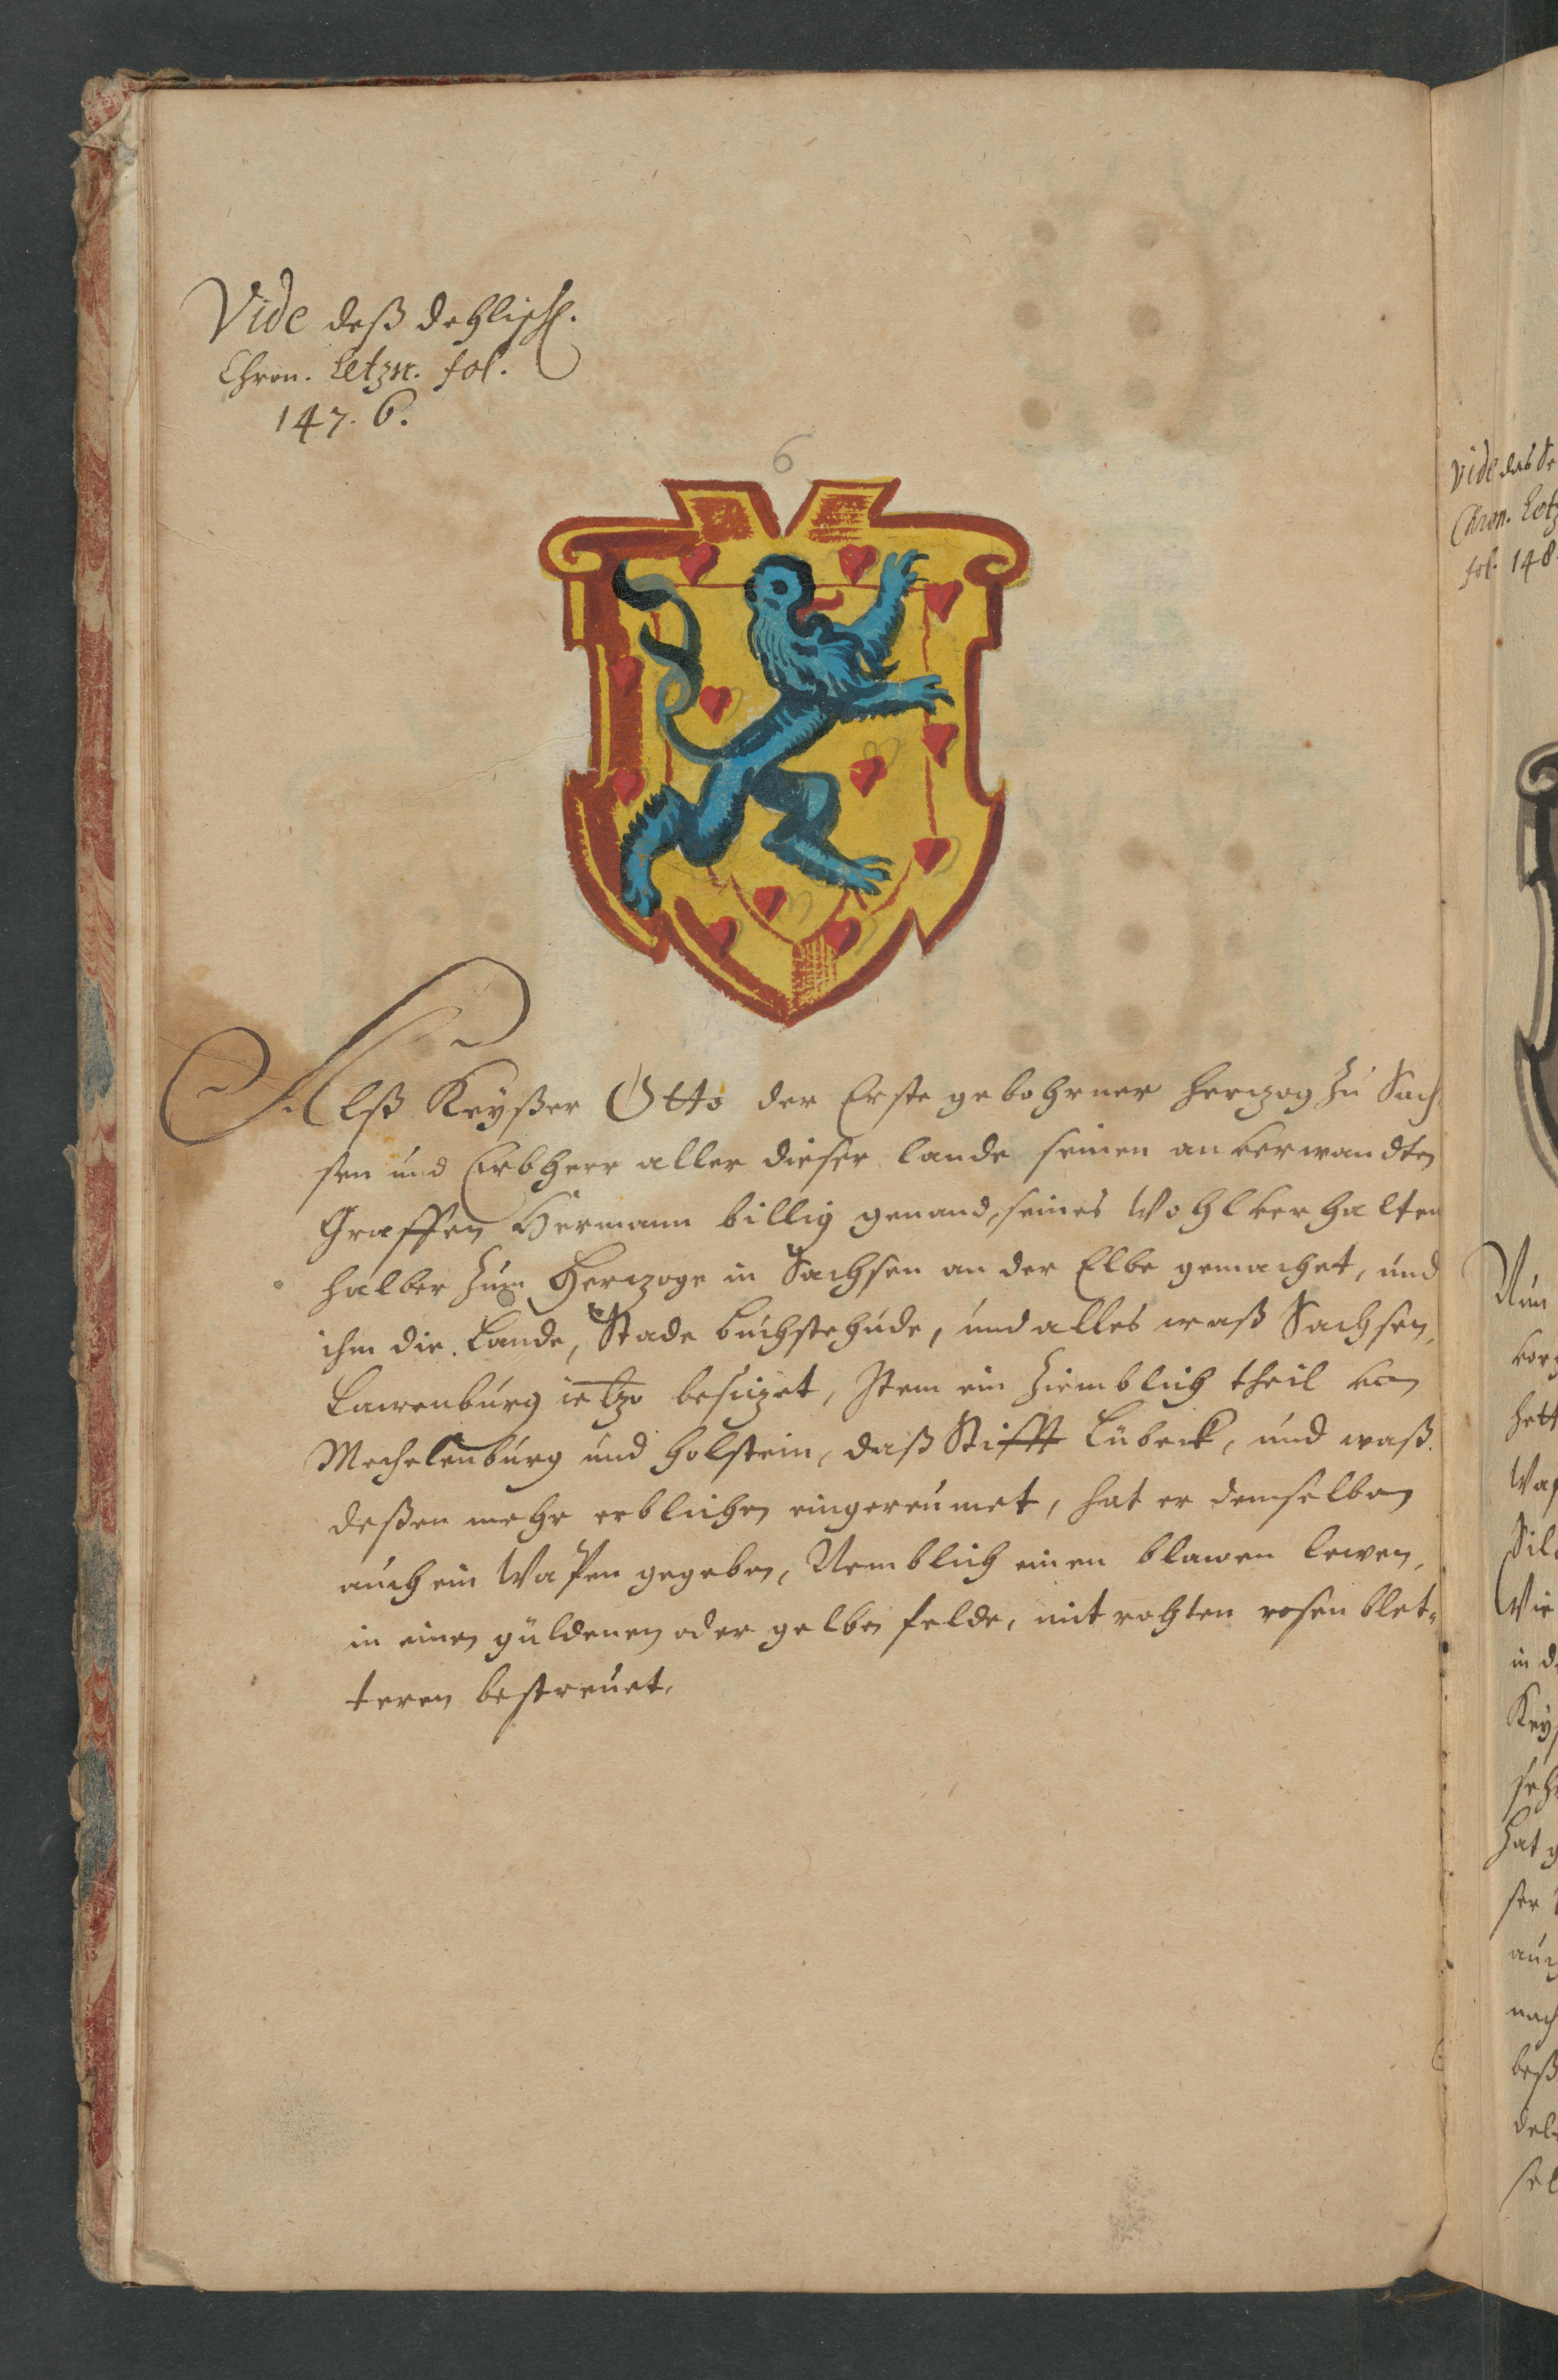 Vide deß dehliss.
Chron. Letzn. fol.
147. 6.
6
Alß Keyßer Otto der Erste gebohrner Herzog zu Sach-
sen und Erbherr aller dieser lande seinen anverwandten
Graffen Hermann billig genand, seines Wohlverhalten
halber zum Herzoge in Sachsen an der Elbe gemachet, und
ihm die Lande, Stade Buchstehude, und alles waß Sachsen,
Lawenburg ietzo besitzet, Item ein ziemblich theil von
Mechelenburg und Holstein, daß Stifft Lübeck, und waß
deßen mehr erblichen eingereumet, hat er demselben
auch ein Wapen gegeben, Nemblich einen blawen lewen,
in einen güldenen oder gelben felde, mit rohten rosen blet-
teren bestreuet.
Vide das
Chron. Letz
fol. 148
Nun
vor
hett
Wap
Sil
Wie
in d
Key
seh
hat g
ser
auch
nach
beß
del
sel